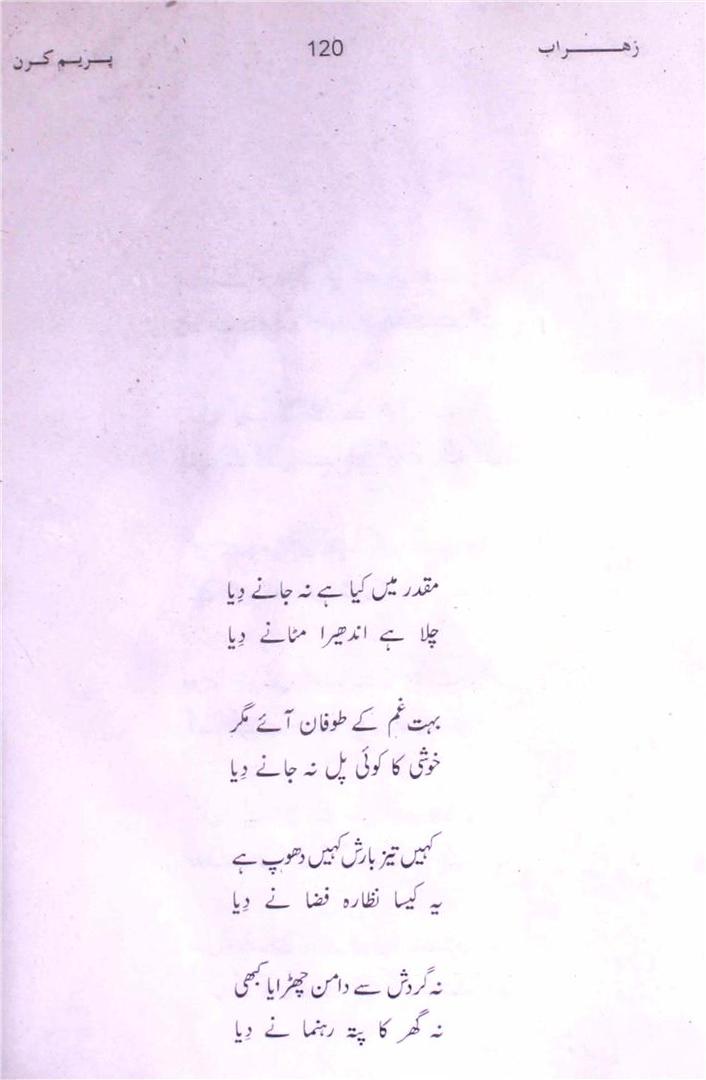 زهراب 120 پریم کرن
مقدر میں کیا ہے نہ جانے دِیا
چلا ہے اندھیرا مٹانے دِیا
بہت غم کے طوفان آئے مگر
خوشی کا کوئی پل نہ جانے دِیا
کہیں تیز بارش کہیں دھوپ ہے
یہ کیسا نظارہ فضا نے دِیا
نہ گردش سے دامن چھڑایا کبھی
نہ گھر کا پتہ رہنما نے دِیا